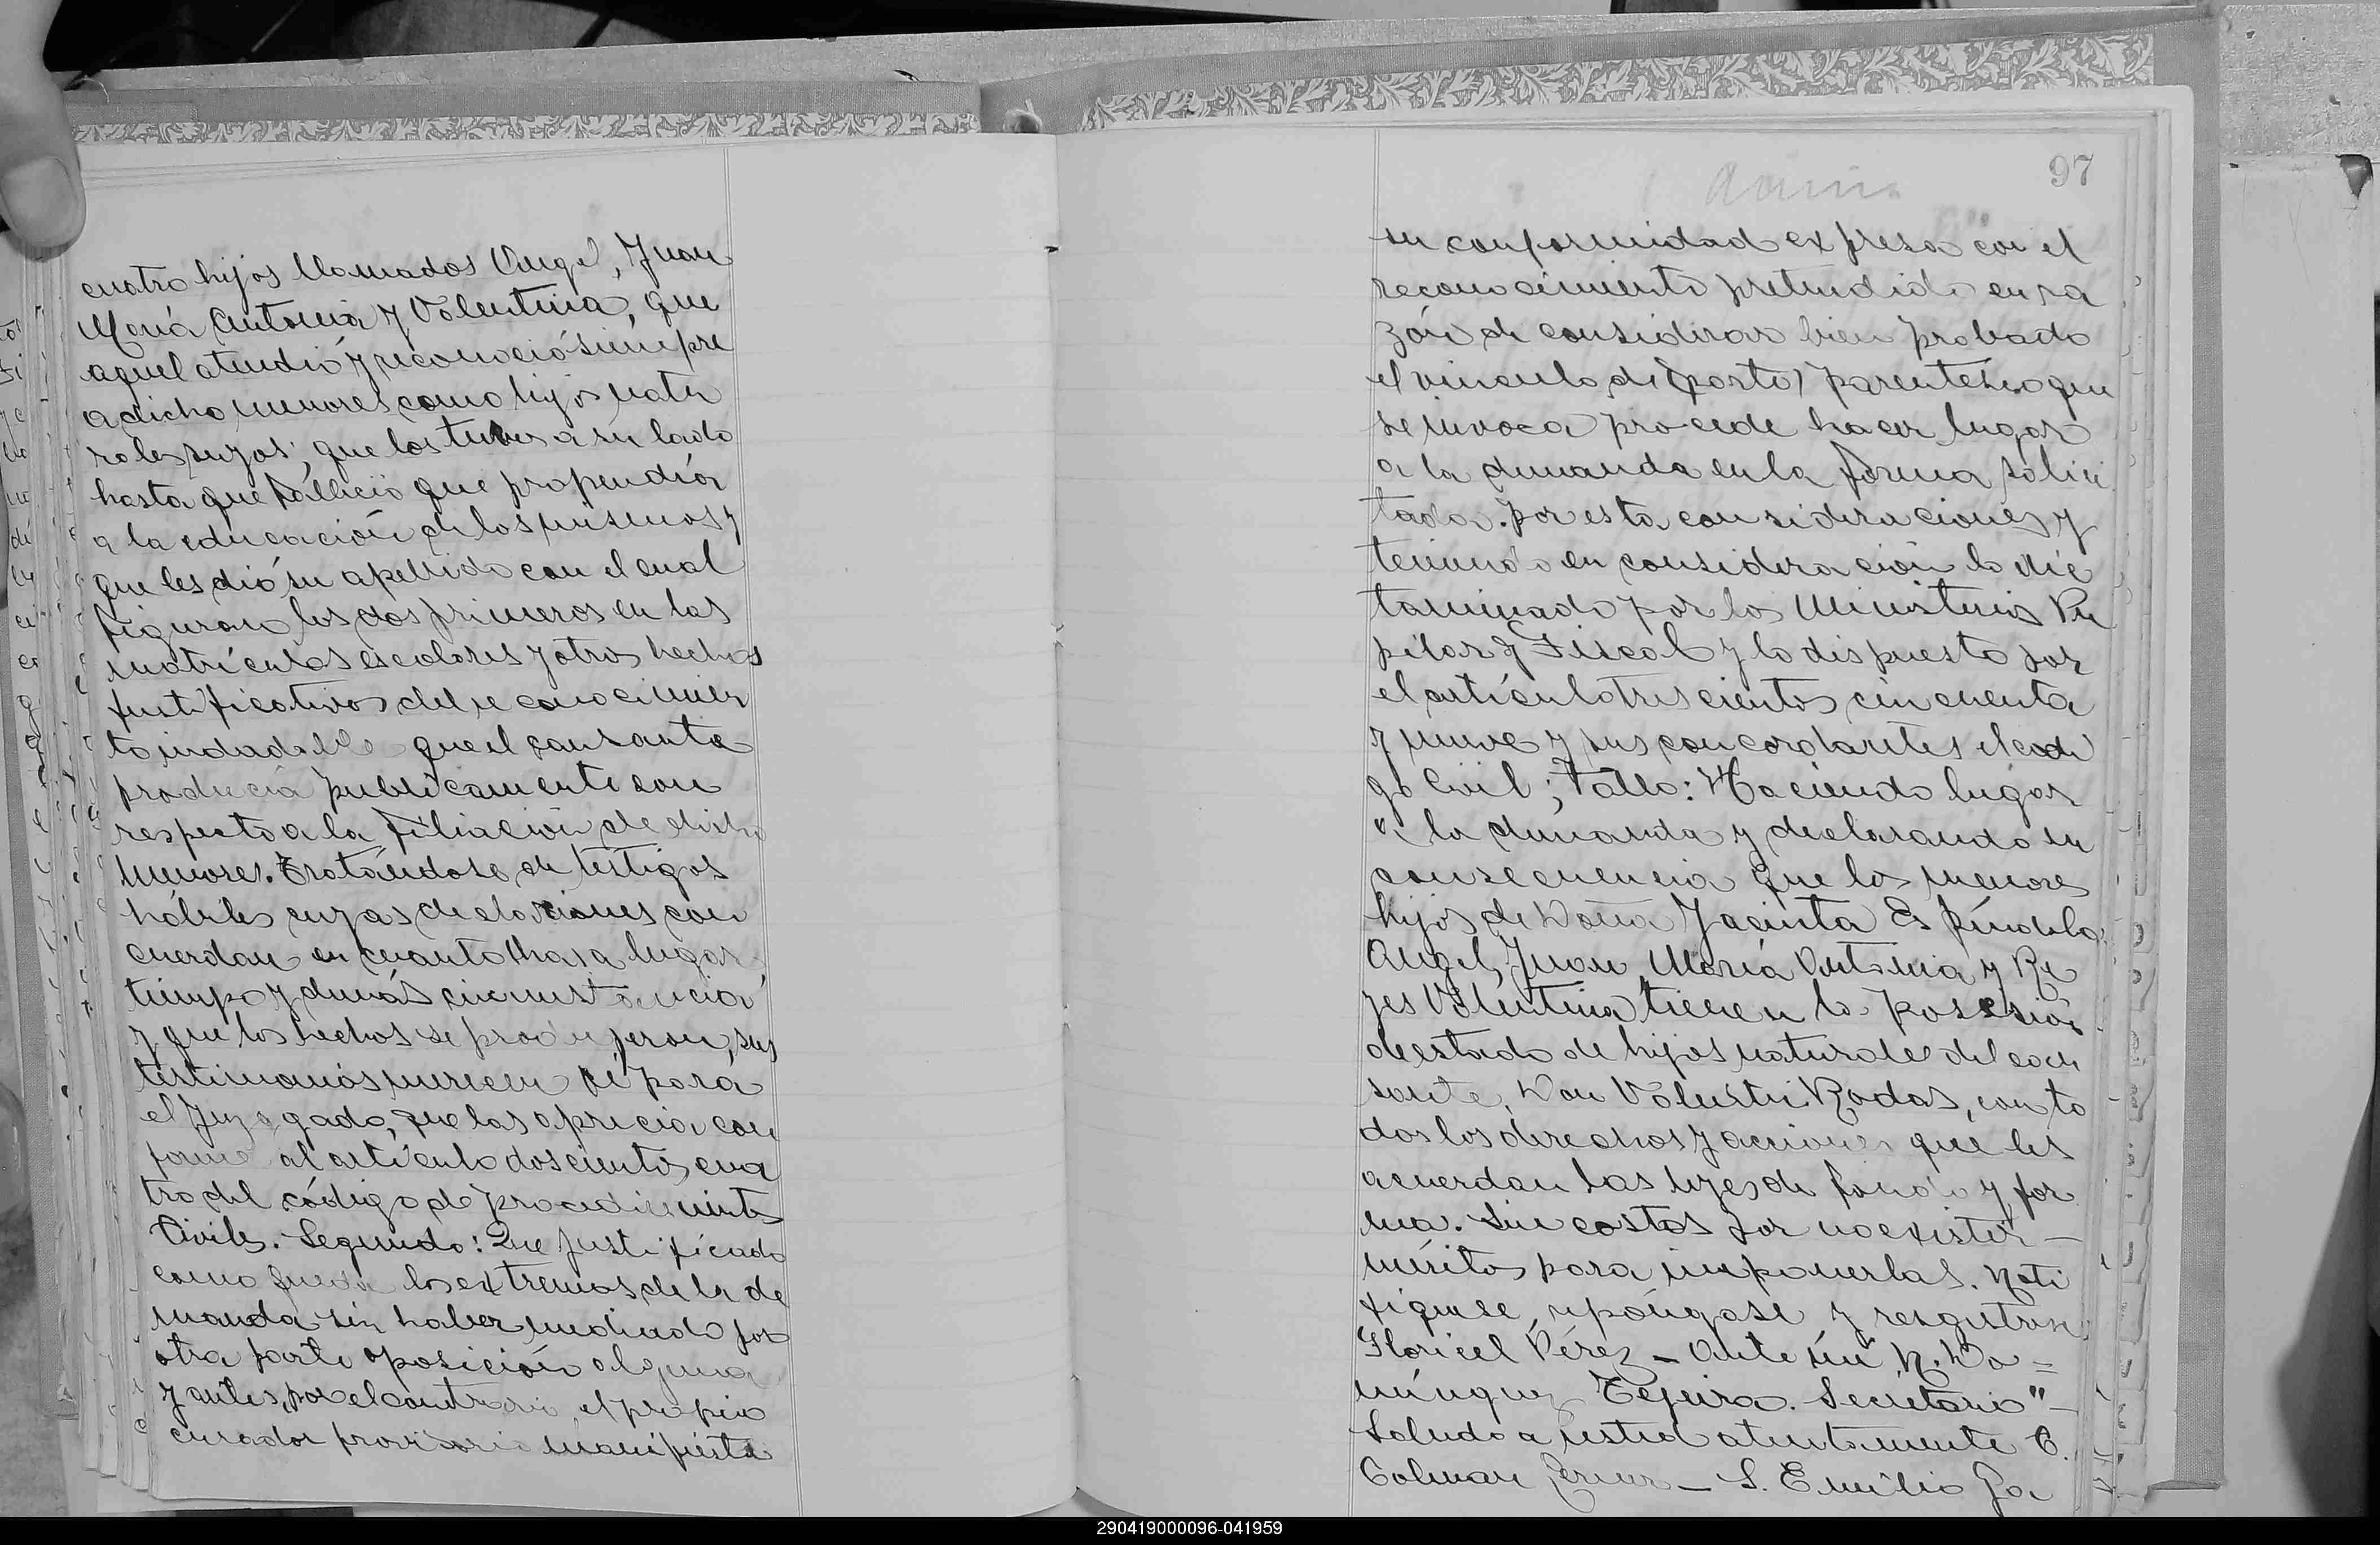 cuatro hijos llamados Angel, Juan
María Antonia y Valentina, que
aquel atendió y reconoció siempre
a dicho menores como hijos natu
rales suyos; que los tuvo a su lado
hasta que falleció que propendía
a la educación de los mismos y
que les dió su apellido con el cual
figuran los dos primeros en las
matrículas escolares y otros hechos
justificativos del reconocimien
to indudable que el causante
producia publicamente con
respecto a la filiación de dicho
menores. Tratándose de testigos
hábiles cuyas declaraciones con
cuerdan en cuanto lugar
tiempo y demás circunstancia
y que los hechos se produjeron, sus
testimonios merecen fé para
el Juzgado, que las aprecia con
forme al artículo doscientos cua
tro del código de procedimientos
Civiles. Segundo: Que justificado
como queda los extremos de la de
manda sin haber mediado por
otra parte oposición alguna
y antes, por el contrario, el propio
curador provisorio manifiesta
97
su conformidad expresa con el
reconocimiento pretendido en ra
zón de considerar bien probado
el vinculo de (parte) parentesco que
se invoca procede hacer lugar
a la demanda en la forma solici
tada. Por esta consideraciones y
teniendo en consideración lo dic
taminado por los Ministerios Pu
pilar y Fiscal y lo dispuesto por
el artículo trescientos cincuenta
y nueve y sus concordantes el codi
go Civil; Fallo: Haciendo lugar
a la demanda y declarando en
consecuencia que los menores
hijos de Doña Jacinta Espíndola
Angel, Juan, María Antonia y Re
yes Valentina tienen la posesión
de estado de hijos naturales del cau
sante, Don Valentin Rodas, con to
dos los derechos y acciones que les
acuerdan las leyes de fondo y for
ma. Sin costas por no existir —
méritos para imponerlas. Noti
fiquese, repóngase y resgistrese
Floricel Pérez — Ante mí N. Do=
mínguez Tejeira. Secretario" —
Saludo a usted atentamente C.
Colman — S. Emilio
290419000096-041959